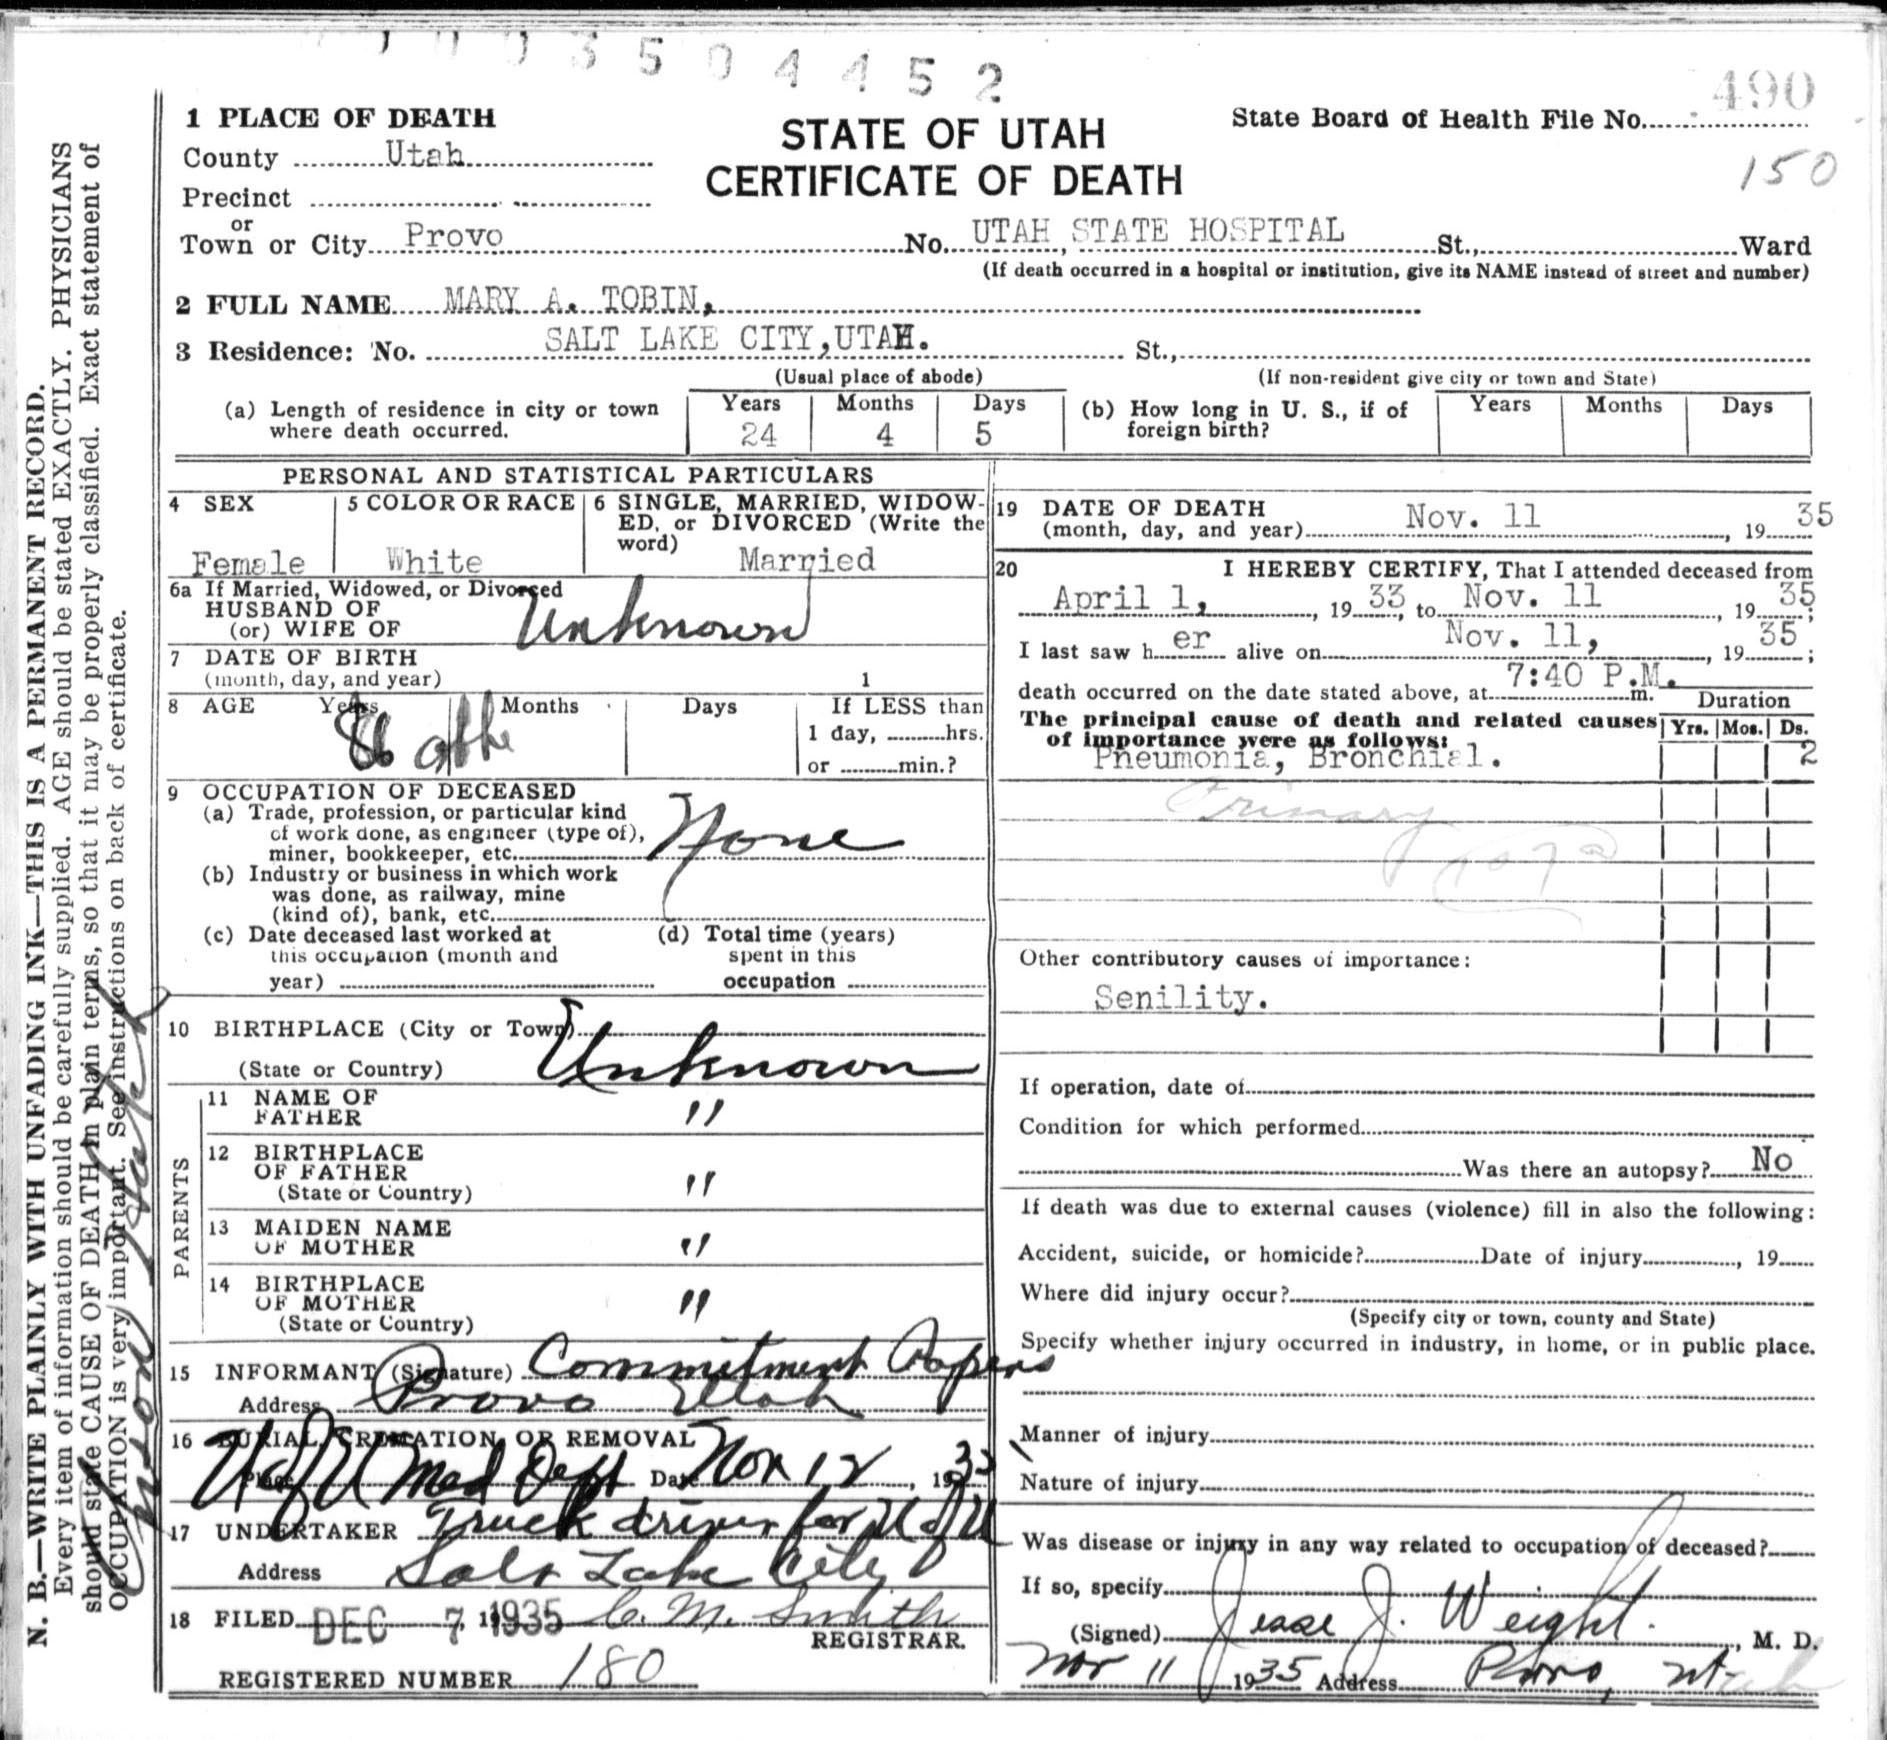 003504452
490
1 PLACE OF DEATH
STATE OF UTAH
CERTIFICATE OF DEATH
State Board of Health File No.
150
County Utah
Precinct
or
Town or City Provo No. UTAH STATE HOSPITAL St., Ward
(If death occurred in a hospital or institution, give its NAME instead of street and number)
2 FULL NAME MARY A. TOBIN,
3 Residence: No. SALT LAKE CITY, UTAH. St.,
(Usual place of abode) (If non-resident give city or town and State)
(a) Length of residence in city or town where death occurred. Years 24 Months 4 Days 5
(b) How long in U. S., if of foreign birth? Years Months Days
PERSONAL AND STATISTICAL PARTICULARS
4 SEX
Female
5 COLOR OR RACE
White
6 SINGLE, MARRIED, WIDOW-
ED, or DIVORCED (Write the
word) Married
6a If Married, Widowed, or Divorced
HUSBAND OF
(or) WIFE OF Unknown
7 DATE OF BIRTH
(month, day, and year) 1
8 AGE Years Months Days If LESS than
1 day, hrs.
or min.?
86
9 OCCUPATION OF DECEASED
(a) Trade, profession, or particular kind
of work done, as engineer (type of),
miner, bookkeeper, etc. None
(b) Industry or business in which work
was done, as railway, mine
(kind of), bank, etc.
(c) Date deceased last worked at
this occupation (month and
year)
(d) Total time (years)
spent in this
occupation
10 BIRTHPLACE (City or Town)
(State or Country) Unknown
PARENTS
11 NAME OF
FATHER "
12 BIRTHPLACE
OF FATHER "
(State or Country)
13 MAIDEN NAME
OF MOTHER "
14 BIRTHPLACE
OF MOTHER "
(State or Country)
15 INFORMANT (Signature) Commitment Papers
Address Provo Utah
16 BURIAL, CREMATION, OR REMOVAL
Place U of U Med Dept Date Nov 12, 1935
17 UNDERTAKER Truck driver for U of U
Address Salt Lake City
18 FILED DEC 7 1935 C. M. Smith
REGISTRAR.
REGISTERED NUMBER 180
19 DATE OF DEATH
(month, day, and year) Nov. 11, 19 35
20 I HEREBY CERTIFY, That I attended deceased from
April 1, 19 33 to Nov. 11, 19 35;
I last saw h er alive on Nov. 11, 19 35;
death occurred on the date stated above, at 7:40 P.M. m.
Duration
The principal cause of death and related causes
of importance were as follows: Yrs. Mos. Ds.
Pneumonia, Bronchial. 2
Primary
107a
Other contributory causes of importance:
Senility.
If operation, date of
Condition for which performed
Was there an autopsy? No
If death was due to external causes (violence) fill in also the following:
Accident, suicide, or homicide? Date of injury, 19
Where did injury occur?
(Specify city or town, county and State)
Specify whether injury occurred in industry, in home, or in public place.
Manner of injury
Nature of injury
Was disease or injury in any way related to occupation of deceased?
If so, specify
(Signed) Jesse J. Weight, M. D.
Nov 11 1935 Address Provo, Utah
N. B.—WRITE PLAINLY WITH UNFADING INK—THIS IS A PERMANENT RECORD.
Every item of information should be carefully supplied. AGE should be stated EXACTLY. PHYSICIANS
should state CAUSE OF DEATH in plain terms, so that it may be properly classified. Exact statement of
OCCUPATION is very important. See instructions on back of certificate.